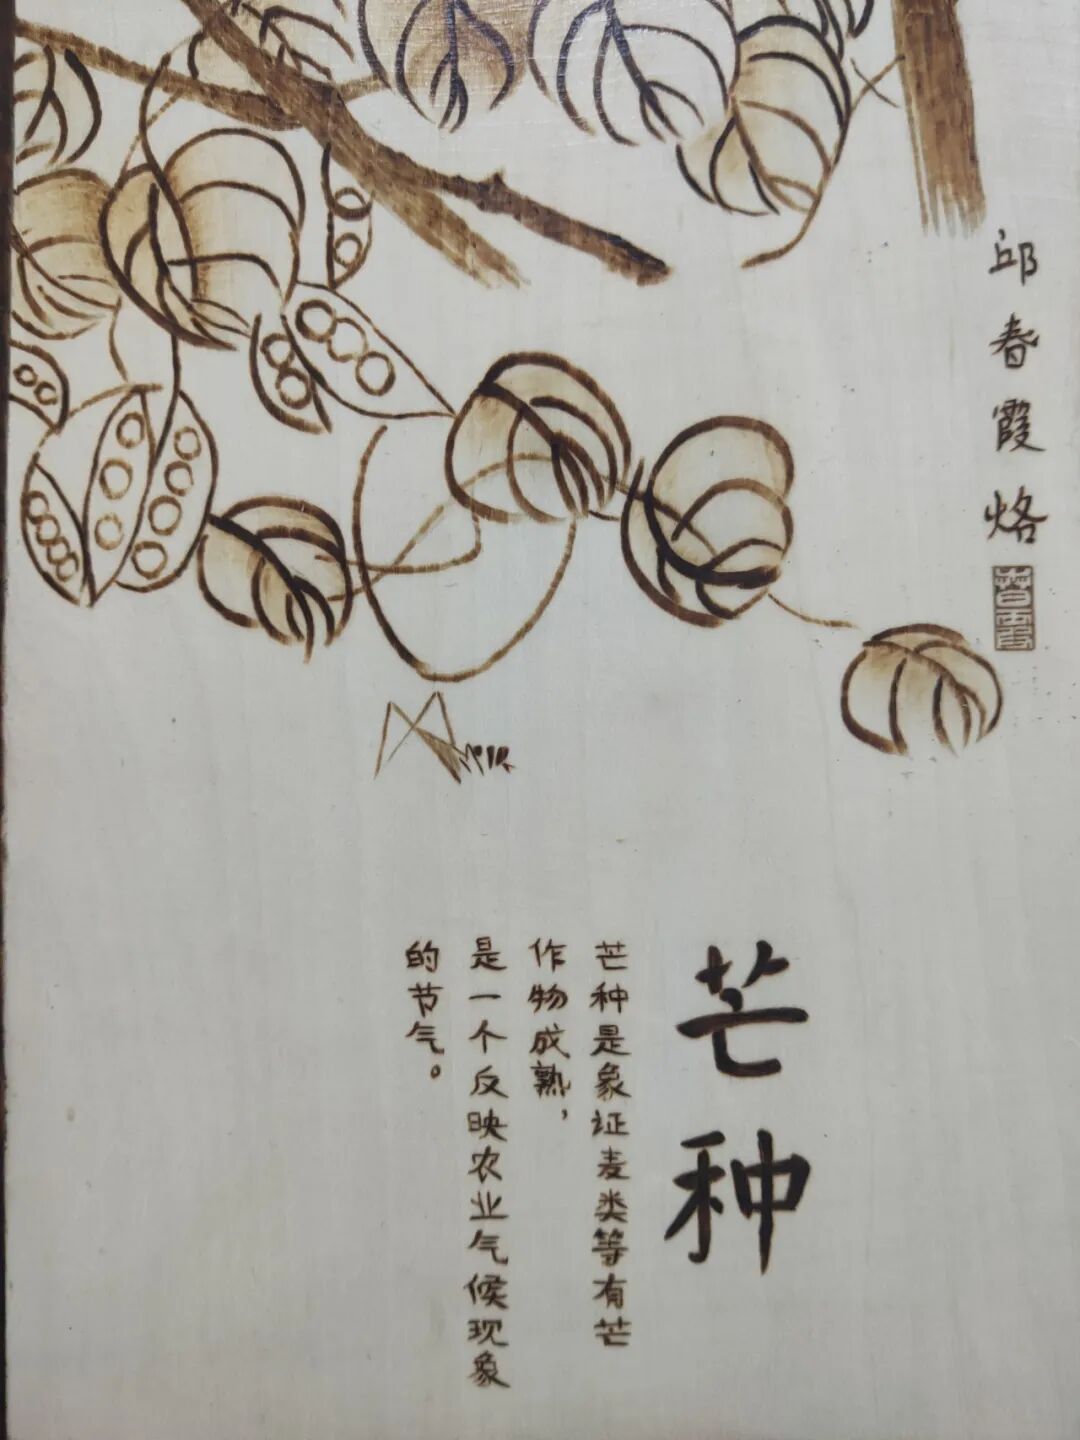 邱春霞烙
芒种
芒种是象证麦类等有芒
作物成熟，
是一个反映农业气候现象
的节气。